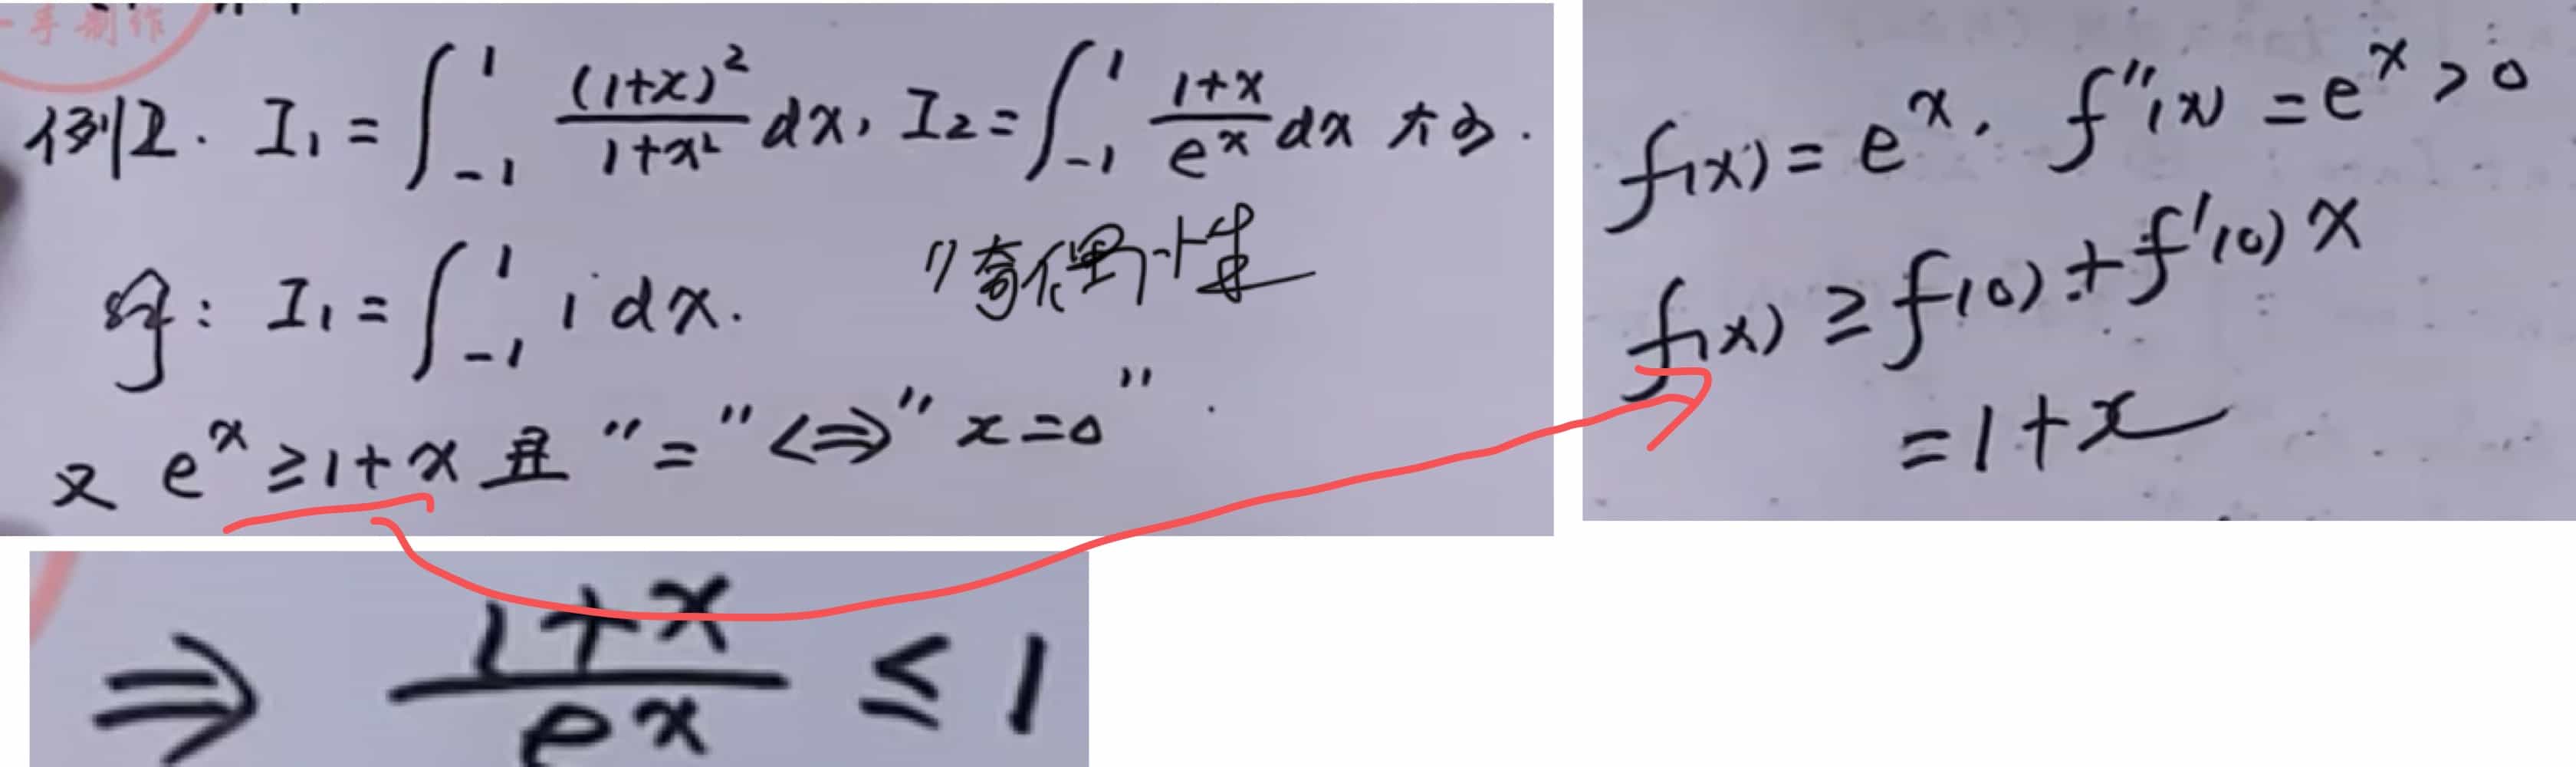 例2. I₁ = ∫₋₁¹ (1+x)²/(1+x²) dx, I₂ = ∫₋₁¹ (1+x)/eˣ dx 大小.
解: I₁ = ∫₋₁¹ 1 dx. "奇偶性
又 eˣ ≥ 1+x 且 "=" <=> "x=0".
⇒ (1+x)/eˣ ≤ 1
f(x) = eˣ, f''(x) = eˣ > 0
f(x) ≥ f(0) + f'(0)x
= 1+x